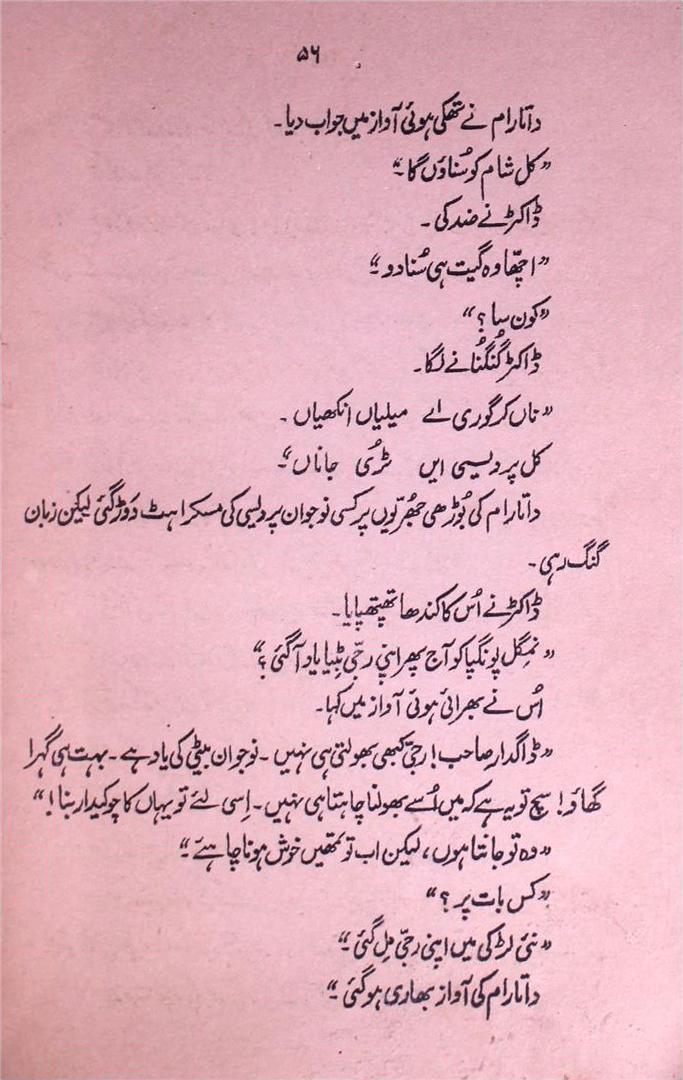 ۵۶
داتارام نے تھکی ہوئی آواز میں جواب دیا۔
”کل شام کو سُناؤں گا۔“
ڈاکٹر نے ضد کی۔
”اچھّا وہ گیت ہی سُنا دو۔“
”کون سا؟“
ڈاکٹر گُنگُنانے لگا۔
”ناں کر گوری اے میلیاں انکھیاں۔
کل پردیسی ایں ٹرُی جاناں۔“
داتارام کی بُوڑھی جھُرّیوں پر کسی نوجوان پردیسی کی مسکراہٹ دَوڑ گئی لیکن زبان
گنگ رہی۔
ڈاکٹر نے اُس کا کندھا تھپتھپایا۔
”نمگل پونگپا کو آج پھر اپنی رجّی بِٹیا یاد آگئی؟“
اُس نے بھرائی ہوئی آواز میں کہا۔
”ڈاگدار صاحب! رجّی کبھی بھولتی ہی نہیں۔ نوجوان بیٹی کی یاد ہے۔ بہت ہی گہرا
گھاؤ! سچ تو یہ ہے کہ میں اُسے بھولنا چاہتا ہی نہیں۔ اِسی لئے تو یہاں کا چوکیدار بنا!“
”وہ تو جانتا ہوں، لیکن اب تو تمھیں خوش ہونا چاہئے۔“
”کس بات پر؟“
”نئی لڑکی میں اپنی رجّی مل گئی۔“
داتارام کی آواز بھاری ہوگئی۔“